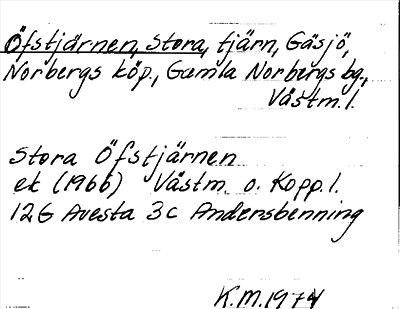 Öfstjärnen, Stora, tjärn, Gäsjö,
Norbergs köp., Gamla Norbergs bg.,
Västm. l.
Stora Öfstjärnen
ek (1966) Västm. o. Kopp. l.
12G Avesta 3c Andersbenning
K.M. 1974